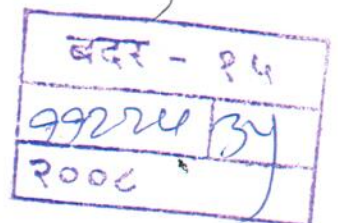 बदर - १५
११२२४ | ३४
२००८